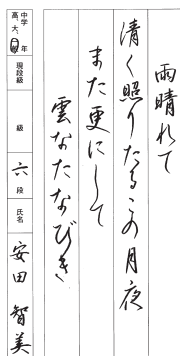 雨晴れて
清く照りたるこの月夜
また更にして
雲なたなびき
中学
高、大、一般 年
現段級
級
六 段
氏名
安田 智美